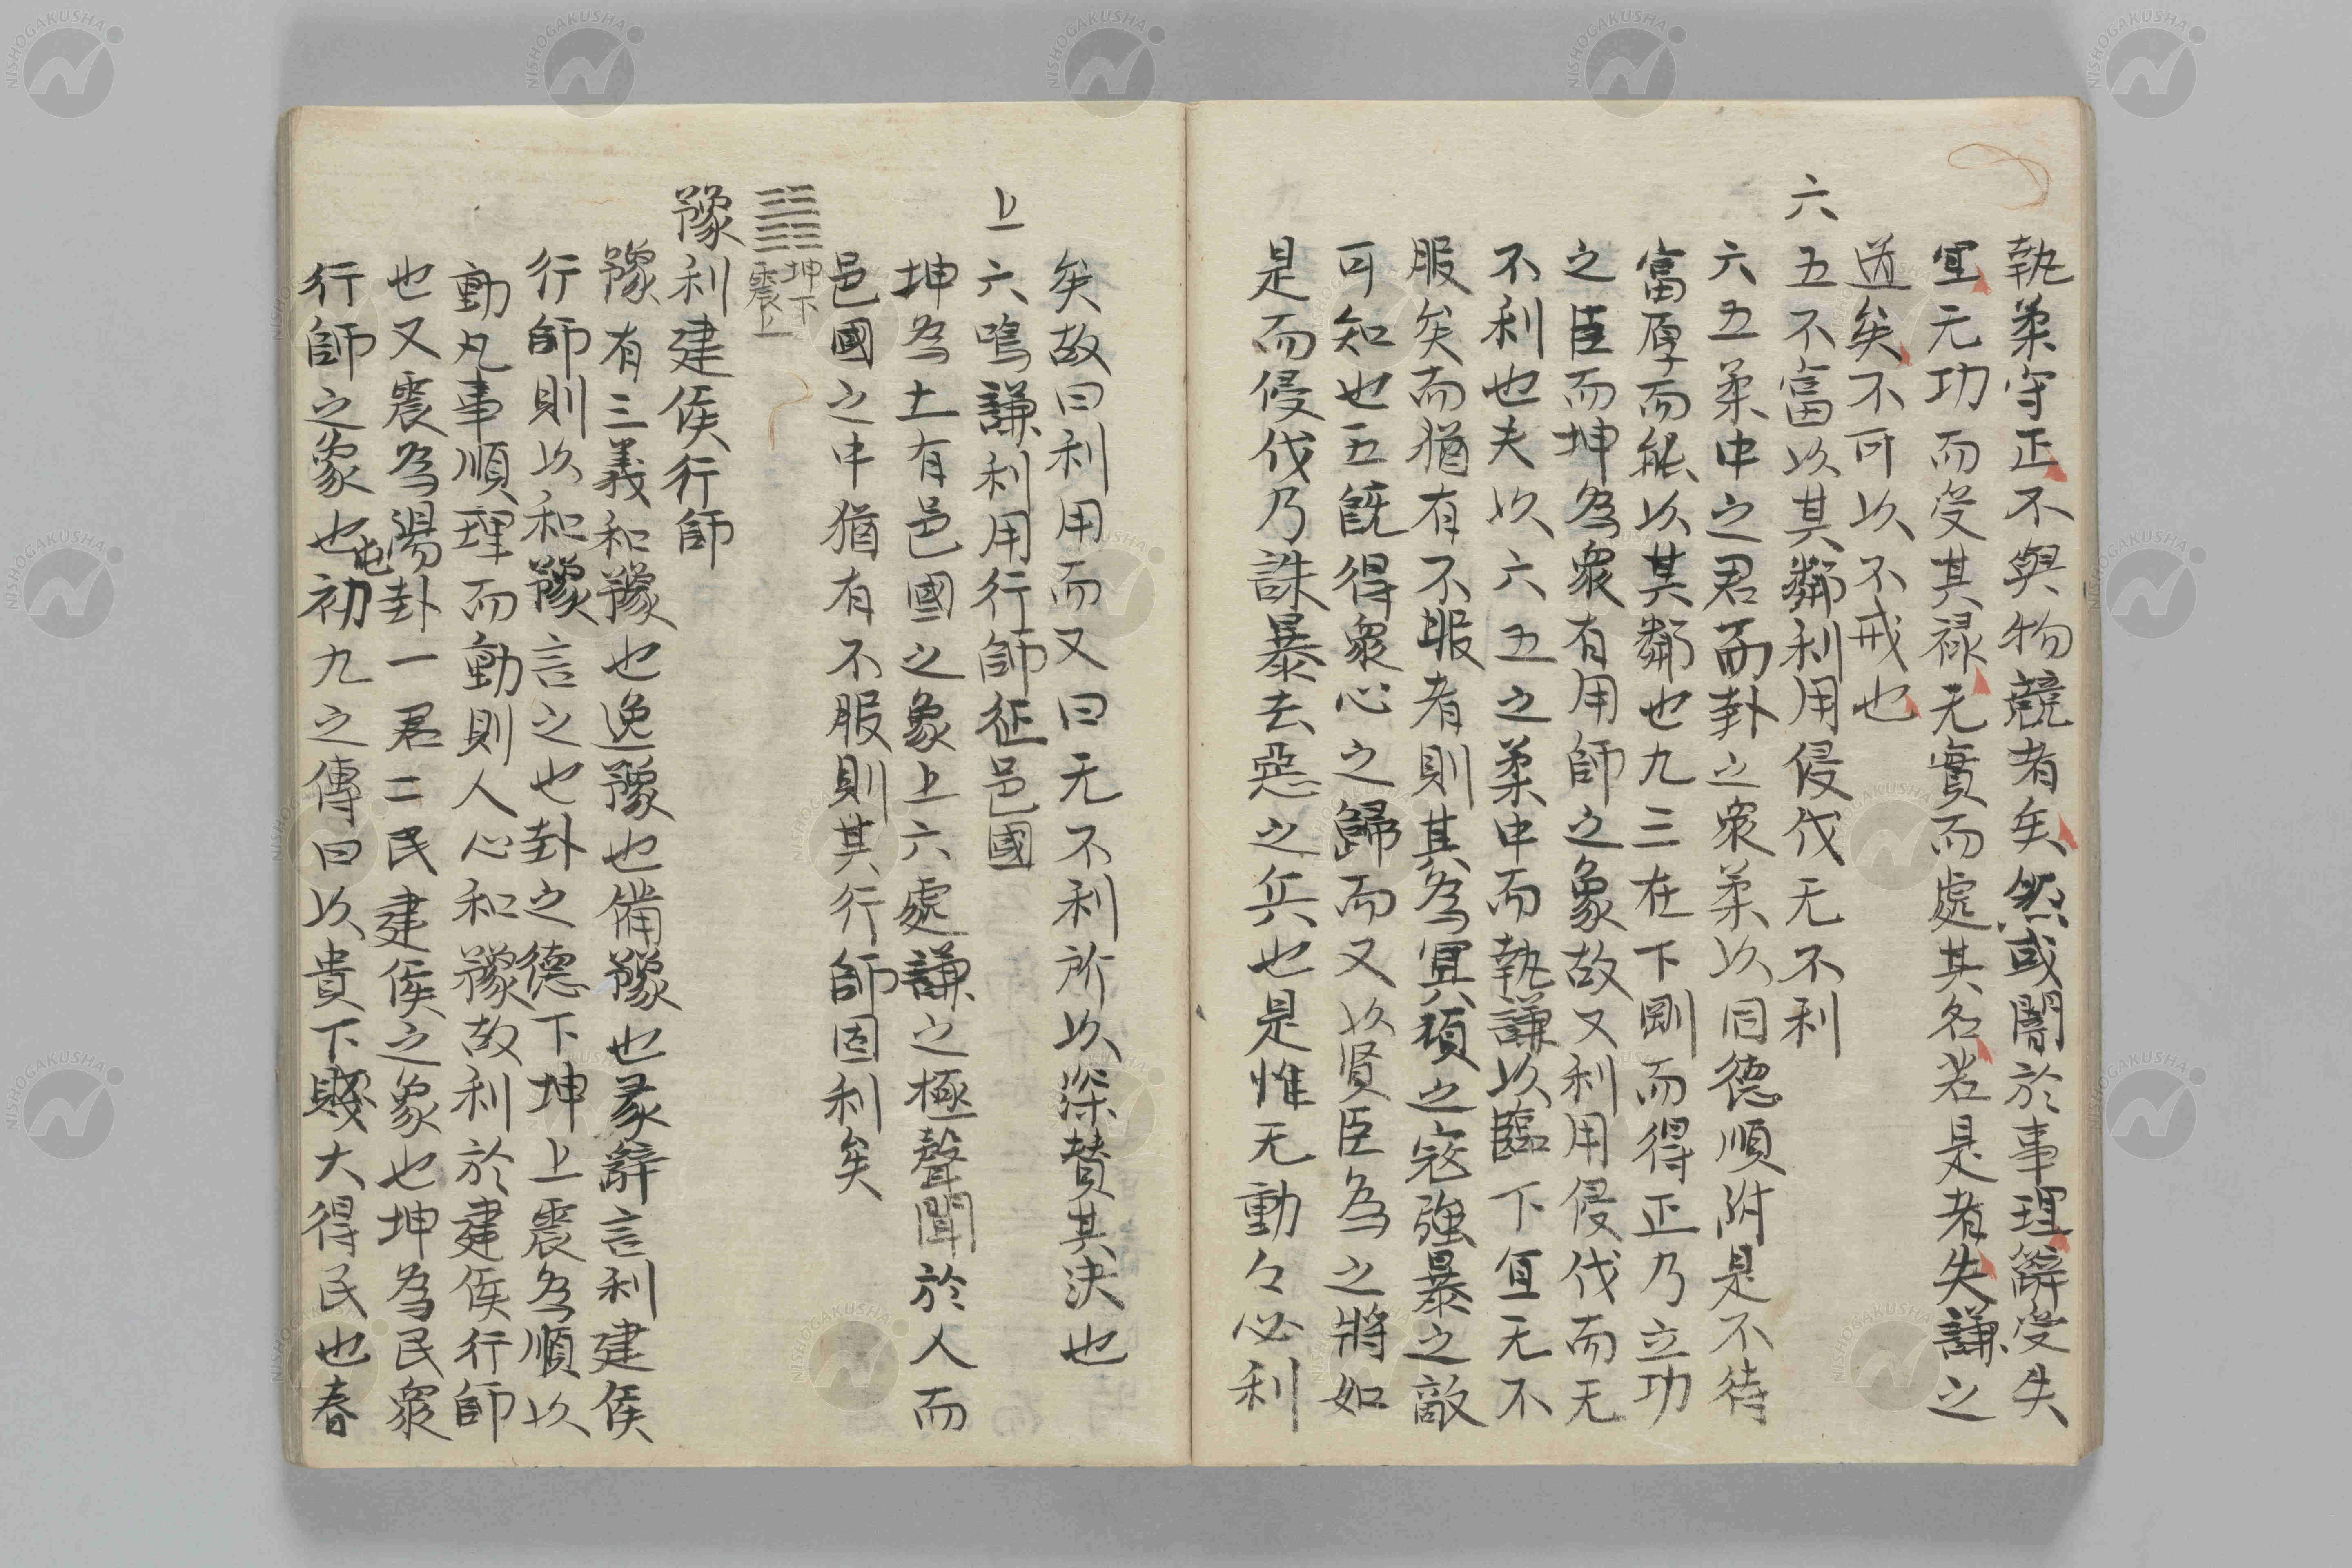 執柔守正不與物競者矣然或闇於事理辭受失
宜无功而受其禄无實而處其名若是者失謙之
道矣不可以不戒也
六五不富以其鄰利用侵伐无不利
六五柔中之君而卦之衆柔以同德順附是不待
富厚而能以其鄰也九三在下剛而得正乃立功
之臣而坤為衆有用師之象故又利用侵伐而无
不利也夫以六五之柔中而執謙以臨下宜无不
服矣而猶有不服者則其為冥頑之寇強暴之敵
可知也五旣得衆心之歸而又以贤臣為之將如
是而侵伐乃誅暴去惡之兵也是惟无動々必利
矣故曰利用而又曰无不利所以深賛其决也
上六鳴謙利用行師征邑國
坤為土有邑國之象上六處謙之極聲聞於人而
邑國之中猶有不服則其行師固利矣
坤下
震上
豫利建侯行師
豫有三義和豫也逸豫也備豫也彖辭言利建侯
行師則以和豫言之也卦之德下坤上震為順以
動凡事順理而動則人心和豫故利於建侯行師
也又震為陽卦一君二民建侯之象也坤為民衆
行師之象也屯初九之傳曰以貴下賤大得民也春
NISHOGAKUSHA